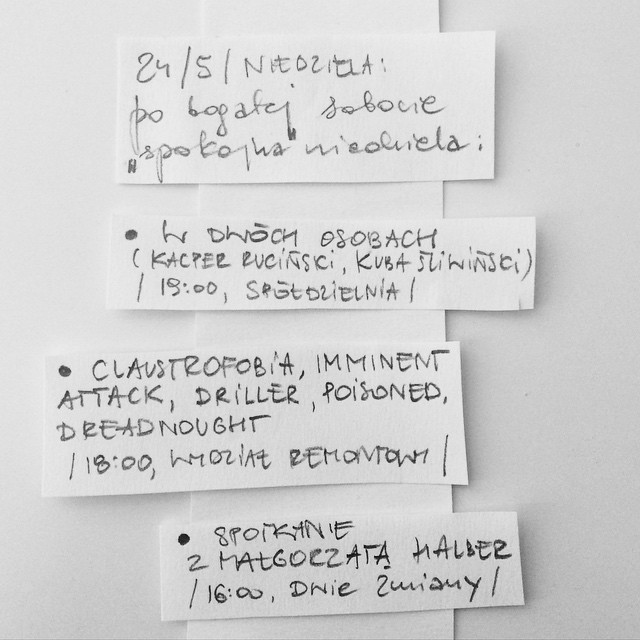 24/5/ NIEDZIELA:
po bogatej sobocie
"spokojna" niedziela:
• W DWÓCH OSOBACH
(KACPER RUCIŃSKI, KUBA ŚLIWIŃSKI)
/ 19:00, SPÓŁDZIELNIA /
• CLAUSTROFOBIA, IMMINENT
ATTACK, DRILLER, POISONED,
DREADNOUGHT
/ 18:00, WYDZIAŁ REMONTOWY /
• SPOTKANIE
Z MAŁGORZATĄ HALBER
/ 16:00, DNIE Zmiany /